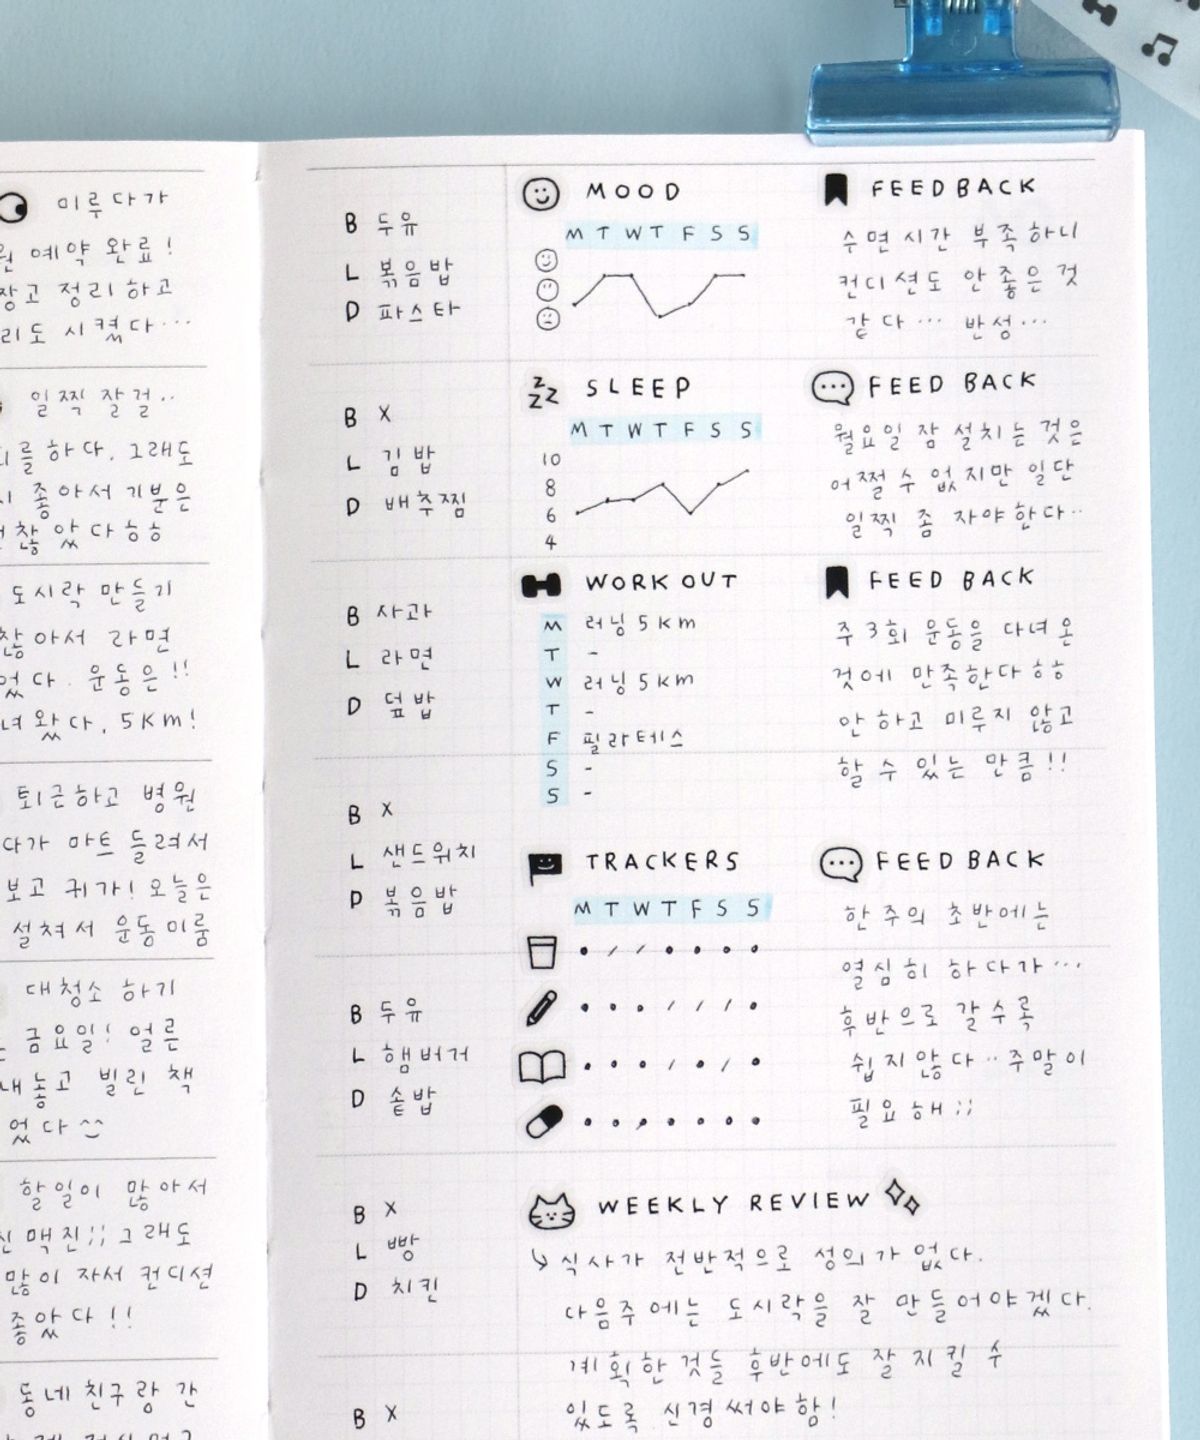 미루다가
예약 완료!
정리 하고
시켰다...
일찍 잘걸..
하다. 그래도
좋아서 기분은
찮았다ㅎㅎ
도시락 만들기
찮아서 라면
었다. 운동은!!
녀왔다, 5Km!
퇴근하고 병원
다가 마트 들려서
보고 귀가! 오늘은
설쳐서 운동 미룸
대청소 하기
금요일! 얼른
내놓고 빌린 책
었다 ^^
할일이 많아서
맥진;; 그래도
많이 자서 컨디션
좋았다!!
동네친구랑 간
B 두유
L 볶음밥
D 파스타
B X
L 김밥
D 배추찜
B 사과
L 라면
D 덮밥
B X
L 샌드위치
D 볶음밥
B 두유
L 햄버거
D 솥밥
B X
L 빵
D 치킨
B X
MOOD
M T W T F S S
FEEDBACK
수면 시간 부족하니
컨디션도 안 좋은 것
같다... 반성...
SLEEP
M T W T F S S
10
8
6
4
FEEDBACK
월요일 잠 설치는 것은
어쩔 수 없지만 일단
일찍 좀 자야한다..
WORKOUT
M 러닝 5Km
T -
W 러닝 5Km
T -
F 필라테스
S -
S -
FEEDBACK
주 3회 운동을 다녀온
것에 만족한다 ㅎㅎ
안 하고 미루지 않고
할 수 있는 만큼!!
TRACKERS
M T W T F S S
FEEDBACK
한 주의 초반에는
열심히 하다가...
후반으로 갈수록
쉽지않다.. 주말이
필요해;;
WEEKLY REVIEW
↳ 식사가 전반적으로 성의가 없다.
다음주에는 도시락을 잘 만들어야겠다.
계획한 것들 후반에도 잘 지킬 수
있도록 신경써야함!